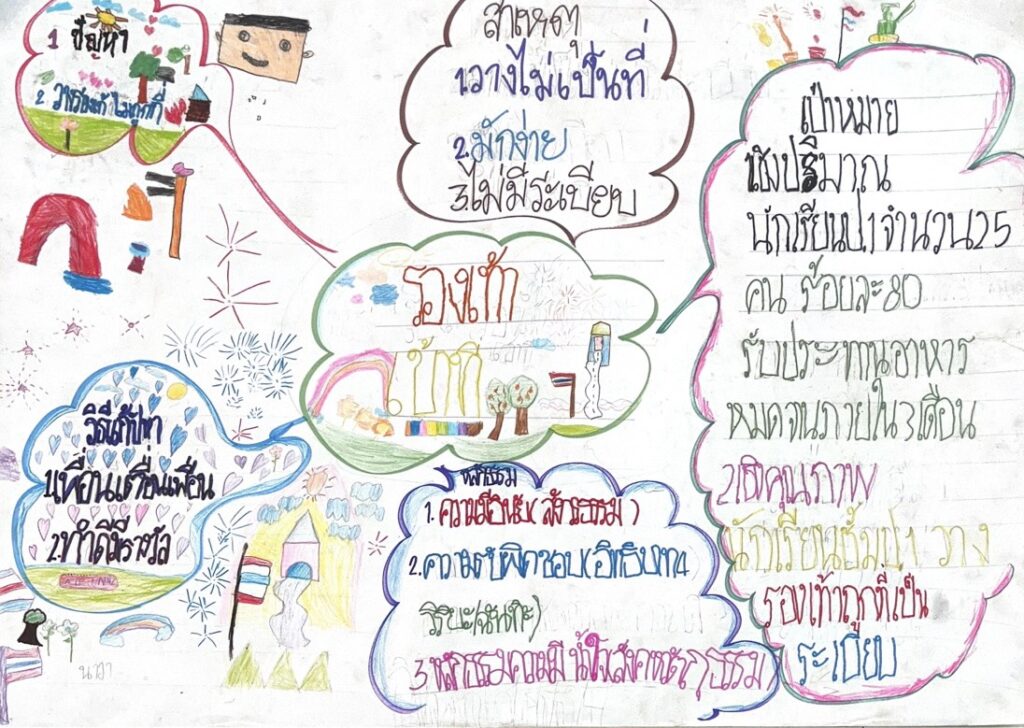 1 ปัญหา
2 วางรองเท้าไม่ถูกที่
สาเหตุ
1วางไม่เป็นที่
2.มักง่าย
3.ไม่มีระเบียบ
รองเท้า
เข้าที่
เป้าหมาย
1เชิงปริมาณ
นักเรียนป.1จำนวน25
คน ร้อยละ80
รับประทานอาหาร
หมดจนภายใน3เดือน
2เชิคุณภาพ
นักเรียนชั้นป1 วาง
รองเท้าถูกที่เป็น
ระเบียบ
วิธีแก้ปัหา
1.เพื่อนเตือนเพื่อน
2.ทำดีมีรางวัล
หลักธรรม
1. ความมีวินัย(สังฆธรรม)
2.ความรับผิดชอบ(อิทธิบาท4
วิริยะ(ฉันทะ)
3.หลักธรรมความมีน้ำใจสังคหวัตถุธรรม)